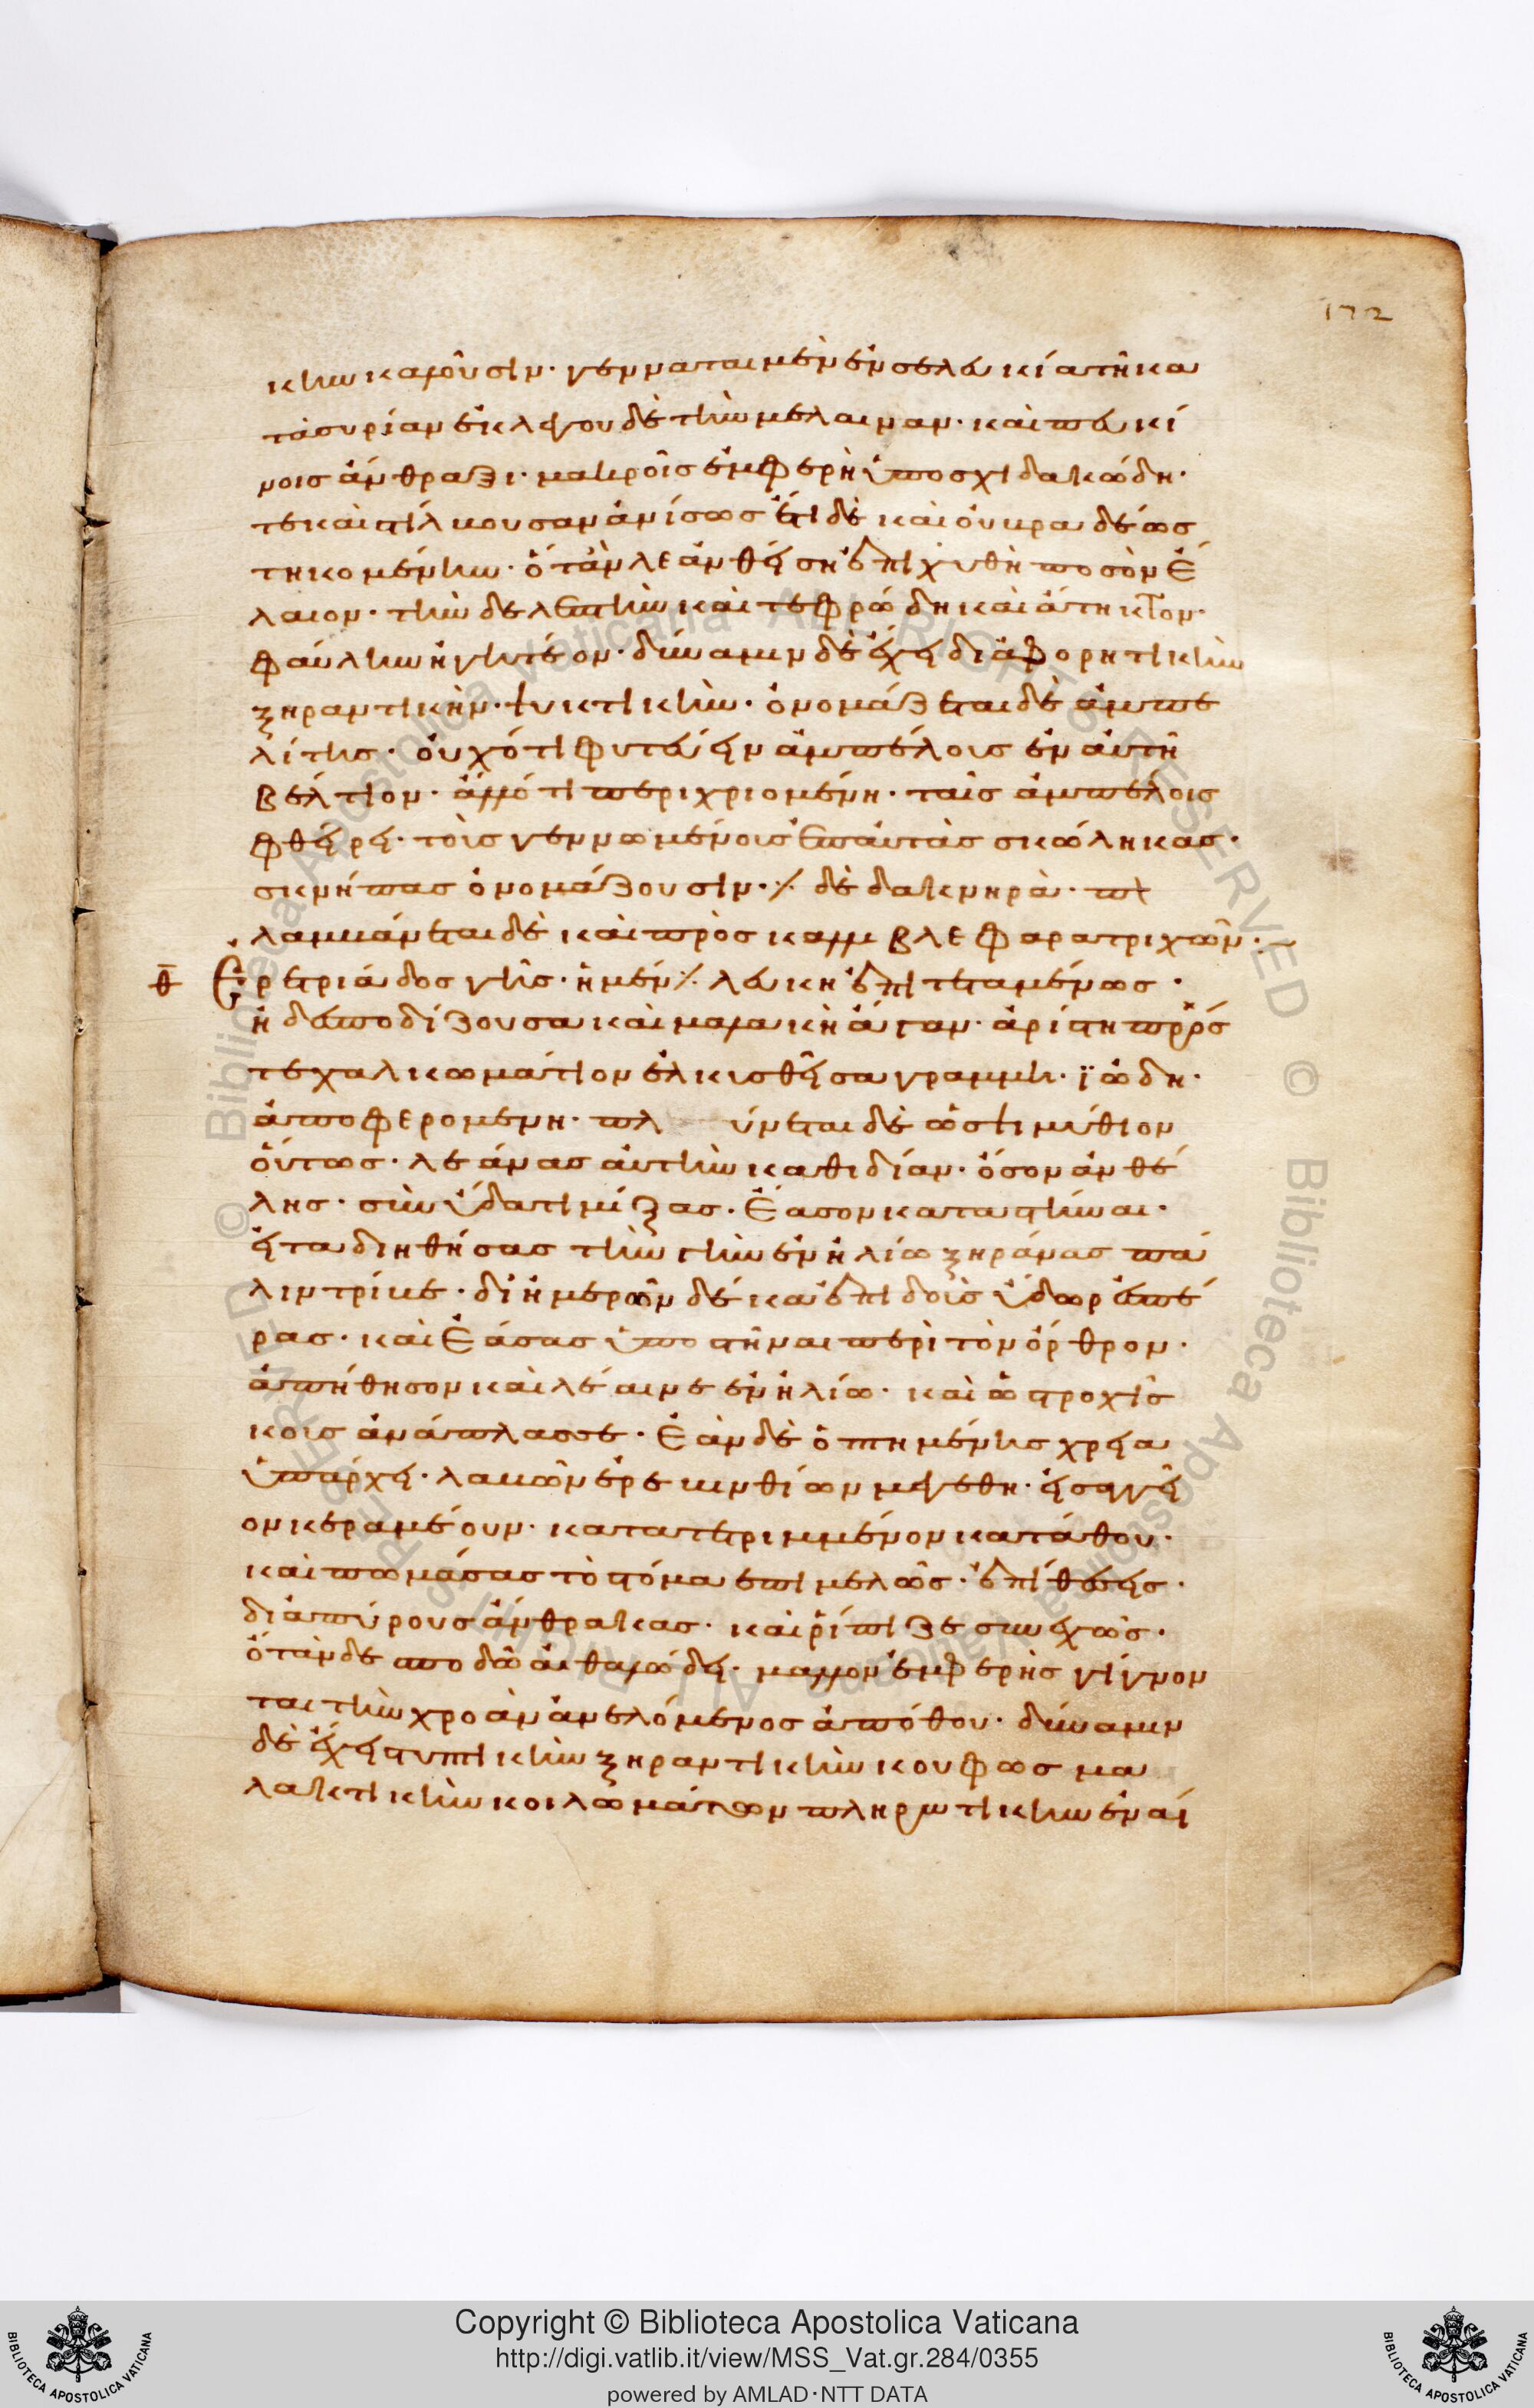 172
κὴν καλοῦσιν· γεννᾶται μὲν ἐν σελευκίᾳ τῆ κα
τὰ συρίαν ἐκλέγου δὲ τὴν μέλαιναν· καὶ πευκί
νοις ἄνθραξι· μακροῖς ἐμφερῆ ὑποσχιδακώδη·
τε καὶ στίλβουσαν ἀνίσως ἔτι δὲ καὶ οὐ βραδέως
τηκομένην· ὅτ' ἂν λεανθείση ἐπιχυθῆ ποσὸν ἐ
λαιον· τὴν δὲ λευκὴν καὶ τεφρώδη καὶ ἄτηκτον·
φαύλην ἡγητέον· δύναμιν δὲ ἔχει διαφορητικὴν
ξηραντικὴν· ψυκτικὴν· ὀνομάζεται δὲ ἀμπε
λίτης· οὐχ ὅτι φυτεύειν ἀμπέλους ἐν αὐτῆ
βέλτιον· ἀλλ' ὅτι περιχριομένη· ταῖς ἀμπέλοις
φθείρει· τοὺς γεννωμένους ἐπ' αὐτὰς σκώληκας·
σκνήπας ὀνομάζουσιν· ⁒ δὲ δακνηρὰ· πλ
λαμβάνεται δὲ καὶ πρὸς καλλιβλέφαρα τριχῶν·
θ Ἐρετριάδος γῆς· ἡ μέν ⁒ λευκὴ ἐπιτεταμένως·
ἡ δὲ σποδίζουσα καὶ μαλακὴ ἄγαν· ἀρίστη πρός
τε χαλκωμάτιον ἑλκυσθεῖσα γραμμὴ· ἰώδη·
ἀποφερομένη· πλύνεται δὲ ὡς ψιμύθιον
οὕτως· λεάνας αὐτὴν καθ' ἰδίαν· ὅσον ἂν θέ
λης· σὺν ὕδατι μίξας· ἔασον καταστῆναι·
εἶτα διηθήσας τὴν γῆν ἐν ἡλίω ξηράνας πά
λιν τρίβε· δι' ἡμερῶν δέκα ἐπιδοὺς ὕδωρ ἑσπέ
ρας· καὶ ἐάσας ὑποστῆναι περὶ τὸν ὄρθρον·
ἀπήθησον καὶ λέαινε ἐν ἡλίω· καὶ ὡς τροχίς
κους ἀνάπλασσε· ἐὰν δὲ ὀπτημένης χρεία
ὑπάρχει· λαβὼν ἐρεβινθίων μεγέθη· εἰς ἀγγεῖ
ον κεραμεοῦν· κατατετριμμένον κατάθου·
καὶ πωμάσας τὸ στόμα ἐπιμελῶς· ἐπιθεὶς·
διαπύρους ἄνθρακας· καὶ ῥίπιζε συνεχῶς·
ὅτ' ἂν δὲ ἀποδῶ αἰθαλώδει· μᾶλλον ἐμφερὴς γίγνον
ται τὴν χροὰν ἀνελόμενος ἀπόθου· δύναμιν
δὲ ἔχει στυπτικὴν ξηραντικὴν κούφως μα
λακτικὴν κοιλωμάτων πληρωτικὴν ἐναί
Copyright © Biblioteca Apostolica Vaticana
http://digi.vatlib.it/view/MSS_Vat.gr.284/0355
powered by AMLAD·NTT DATA
BIBLIOTECA APOSTOLICA VATICANA
BIBLIOTECA APOSTOLICA VATICANA